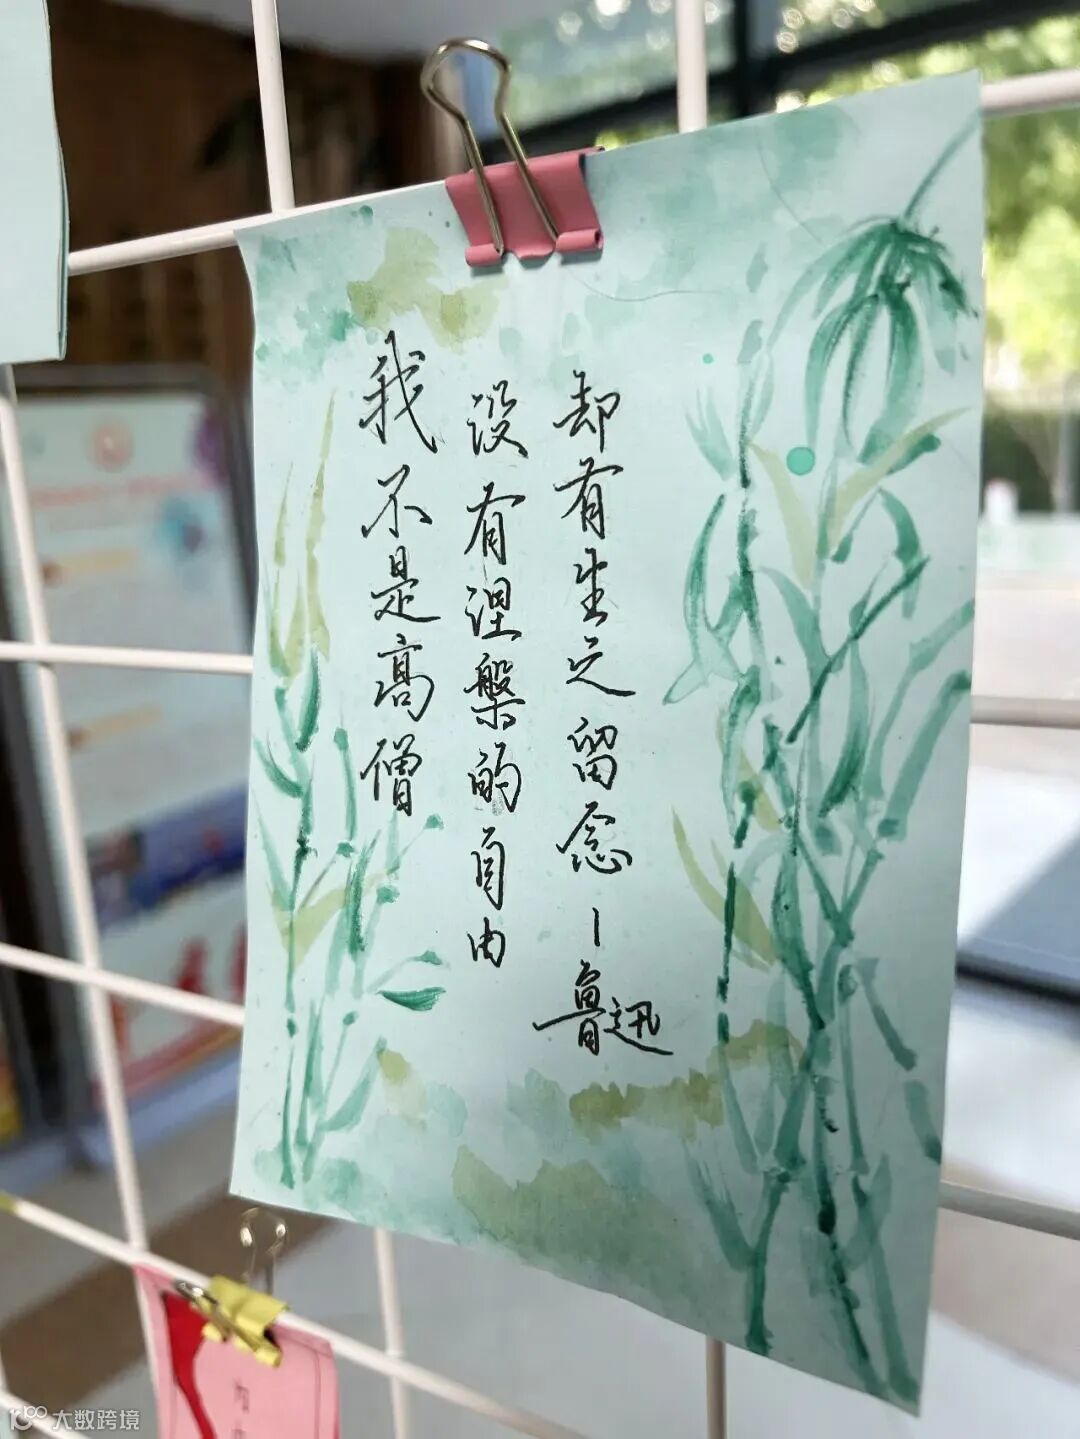 我不是高僧
没有涅槃的自由
却有生之留念—鲁迅
大数跨境